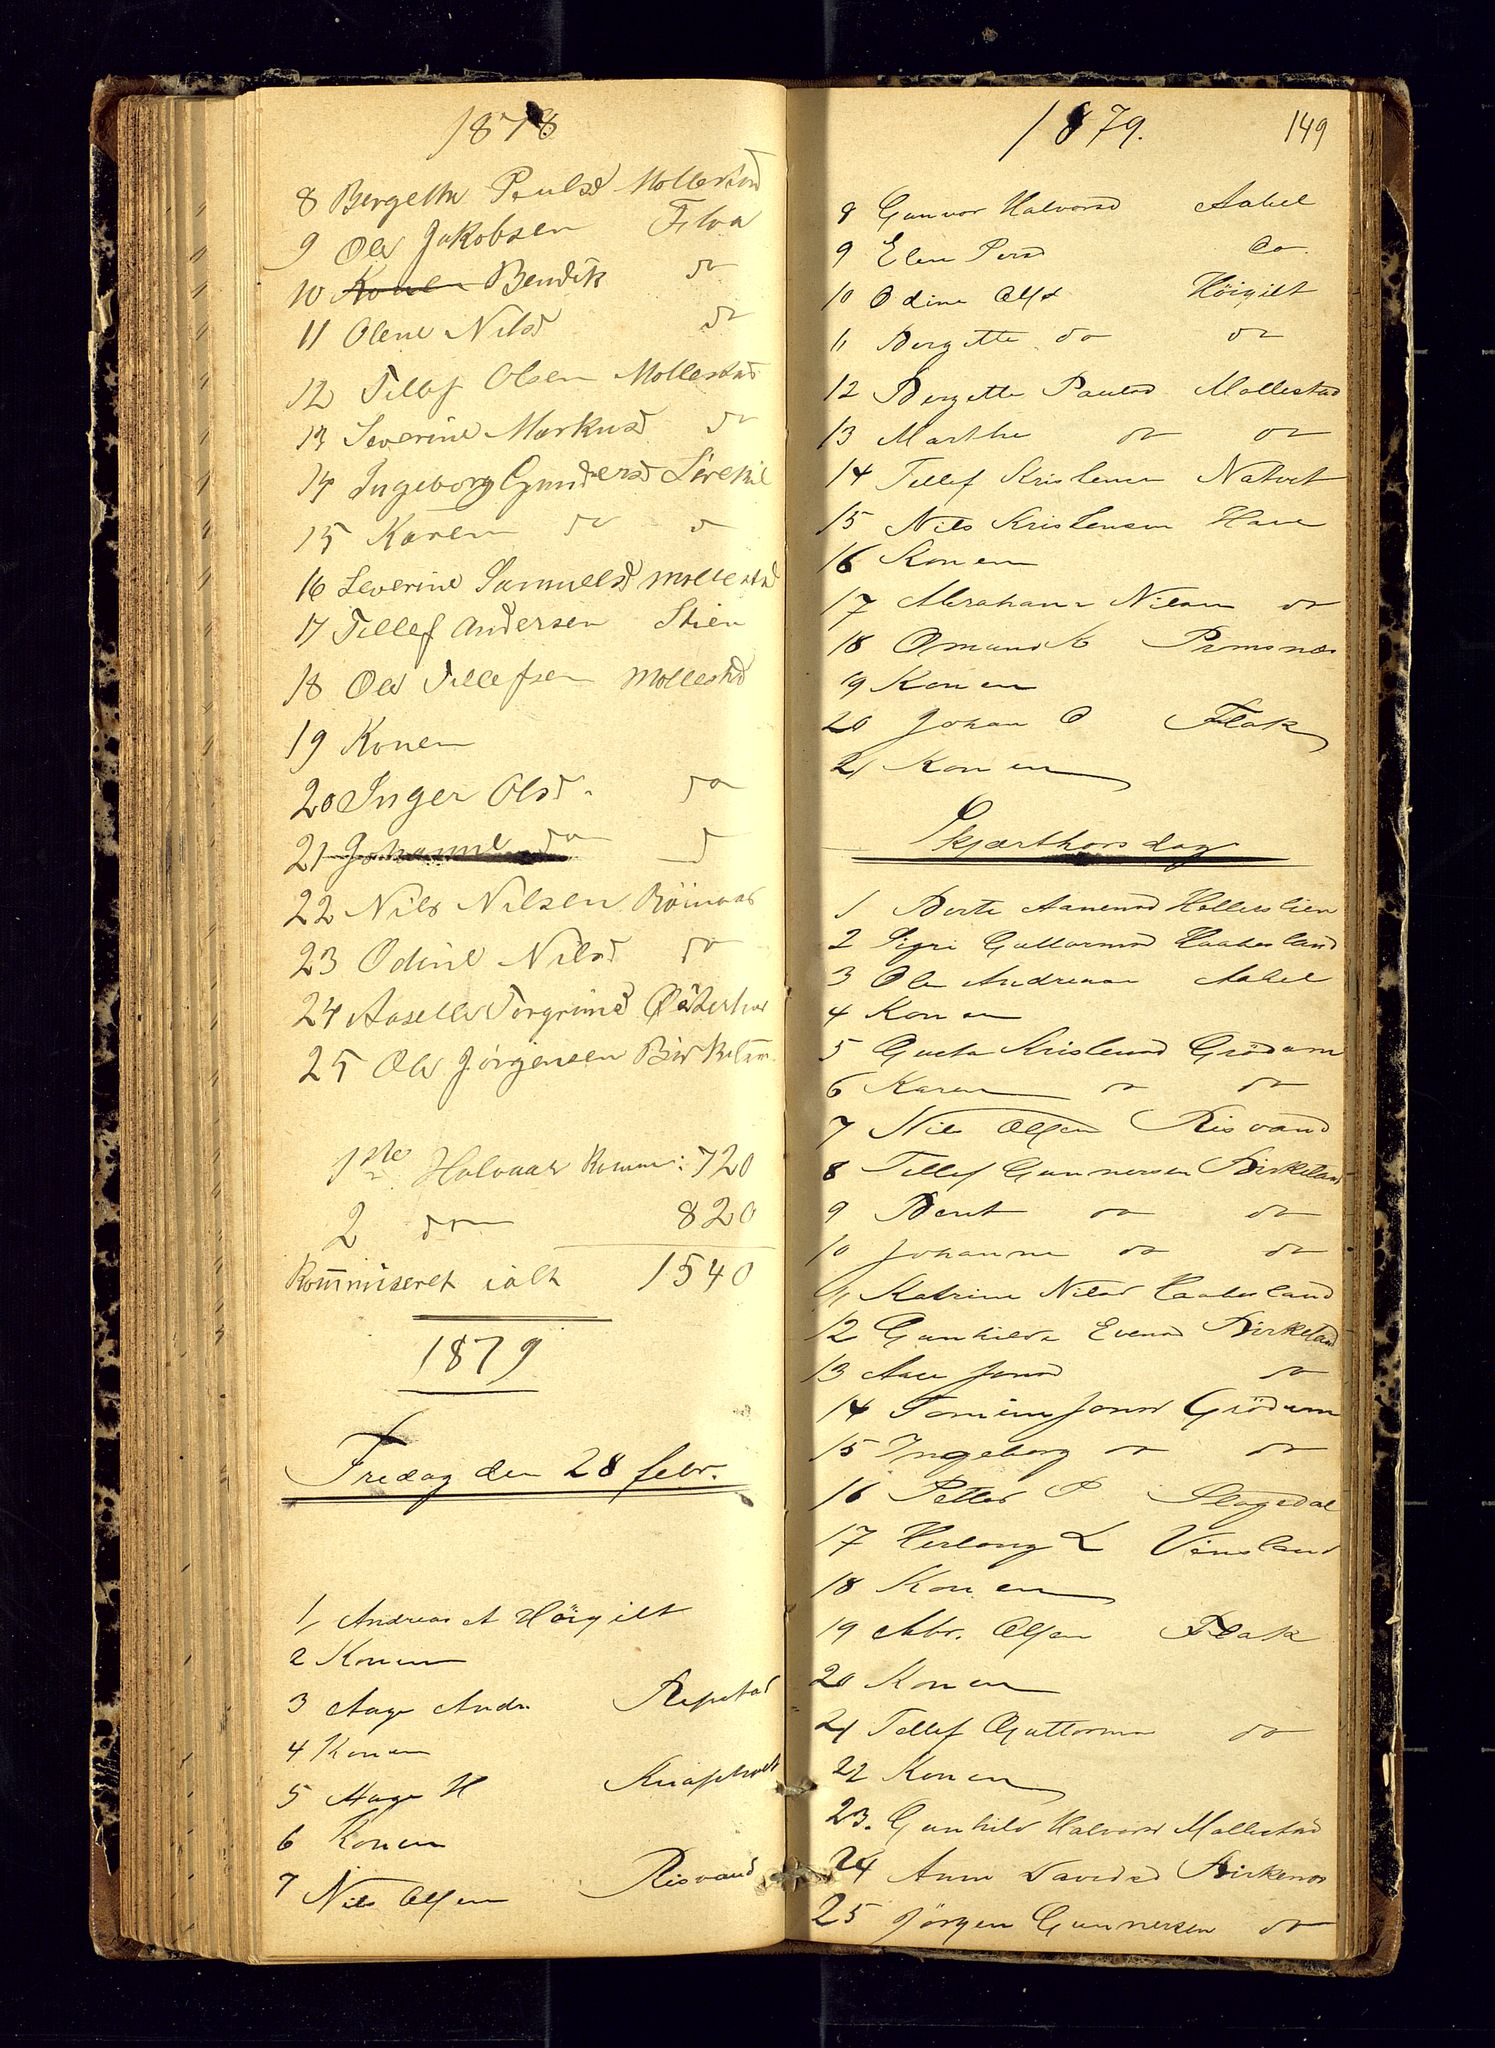 1878
8 Bergethe Paulsd Mollestad
9 Ole Jakobsen Flaa
10 Konen Bendik do
11 Olene Nilsd do
12 Tellef Olsen Mollestad
13 Severine Markusd do
14 Ingeborg Gundersd
15 Karen do do
16 Severine Samuelsd Mollestad
17 Tellef Andersen Stien
18 Ole Tellefsen Mollestad
19 Konen
20 Inger Olsd. do
21 Johanne do do
22 Nils Nilsen
23 Odine Nilsd do
24 Torgrimsd
25 Ole Jörgensen
1ste Halvaar Komm: 720
2 do 820
Kommiseret ialt 1540
1879
Fredag den 28 febr.
1 Andreas A Höigilt
2 Konen
3 Aage Andr Repstad
4 Konen
5 Aage H Knapholt
6 Konen
7 Nils Olsen Risvand
1879. 149
8 Gunvor Halvorsd Aabel
9 Elen Persd do
10 Odine Olsd Höigilt
11 Bergette do do
12 Bergette Paulsd Mollestad
13 Marthe do do
14 Tellef Kristensen Natvet
15 Nils Kristensen Have
16 Konen
17 Abraham Nilsen do
18 Omund K
19 Konen
20 Johan O Flak
21 Konen
Skjærthorsdag
1 Berte Aanensd Hollerslien
2 Sigri Guttormsd Haabesland
3 Ole Andreasen Aabel
4 Konen
5 Gusta Kristensd Grödum
6 Karen do do
7 Nils Olsen Risvand
8 Tellef Gunnersen Birkeland
9 Berit do do
10 Johanne do do
11 Katrine Nilsd Haabesland
12 Gunhilde Evensd Birkeland
13 Aase Jonsd do
14 Jonsd Grödum
15 Ingeborg do do
16 Petter P Slogedal
17 L Vinsland
18 Konen
19 Abr. Olsen Flak
20 Konen
21 Tellef Guttormsen do
22 Konen
23. Gunhild Halvorsd Mollestad
24 Anne Davidsd Birkenes
25 Jörgen Gunnersen do